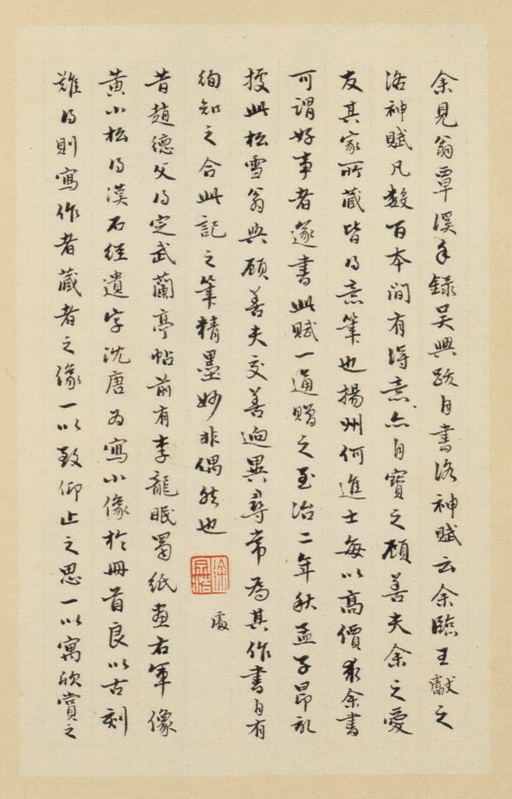 余見翁覃溪手錄吳興跋自書洛神賦云余臨王獻之
洛神賦凡數百本間有得意亦自寶之顧善夫余之愛
友其家所藏皆得意筆也揚州何進士每以高價求余書
可謂好事者遂書此賦一通贈之至治二年秋孟子昂記
按此松雪翁與顧善夫交善迥異尋常為其作書自有
絢知之合此記之筆精墨妙非偶然也
處
昔趙德父得定武蘭亭帖前有李龍眠蜀紙畫右軍像
黃小松得漢石經遺字沈唐為寫小像於冊首良以古刻
難得則寫作者藏者之像一以致仰止之思一以寓欣賞之